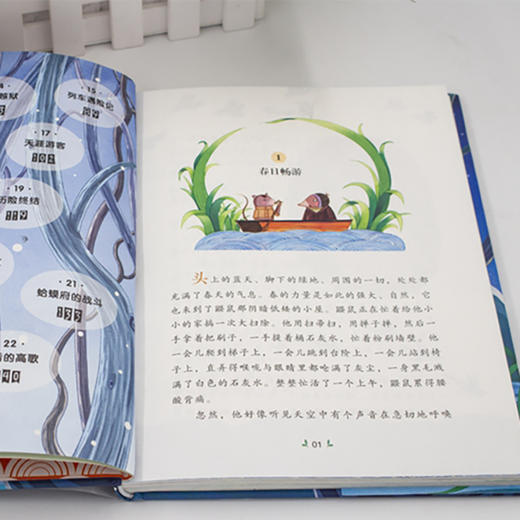 15
列车遇险记
17
天涯游客
102
19
历险终结
119
21
蛤蟆府的战斗
133
22
的高歌
140
1
春日畅游
头上的蓝天、脚下的绿地、周围的一切，处处都
充满了春天的气息。春的力量是如此的强大、自然，它
也来到了鼹鼠那挡暗低矮的小屋。鼹鼠正在忙着给他小
小的家搞一次大扫除。他用扫帚扫，用掸子掸，然后一
手拿着把刷子，一手提着桶石灰水，忙着粉刷墙壁。他
一会儿爬到梯子上，一会儿跳到台阶上，一会儿站到椅
子上，直弄得喉咙与眼睛里都呛满了灰尘，一身黑毛溅
满了白色的石灰水。整整忙活了一个上午，鼹鼠累得腰
酸背痛。
忽然，他好像听见天空中有个声音在急切地呼唤
01